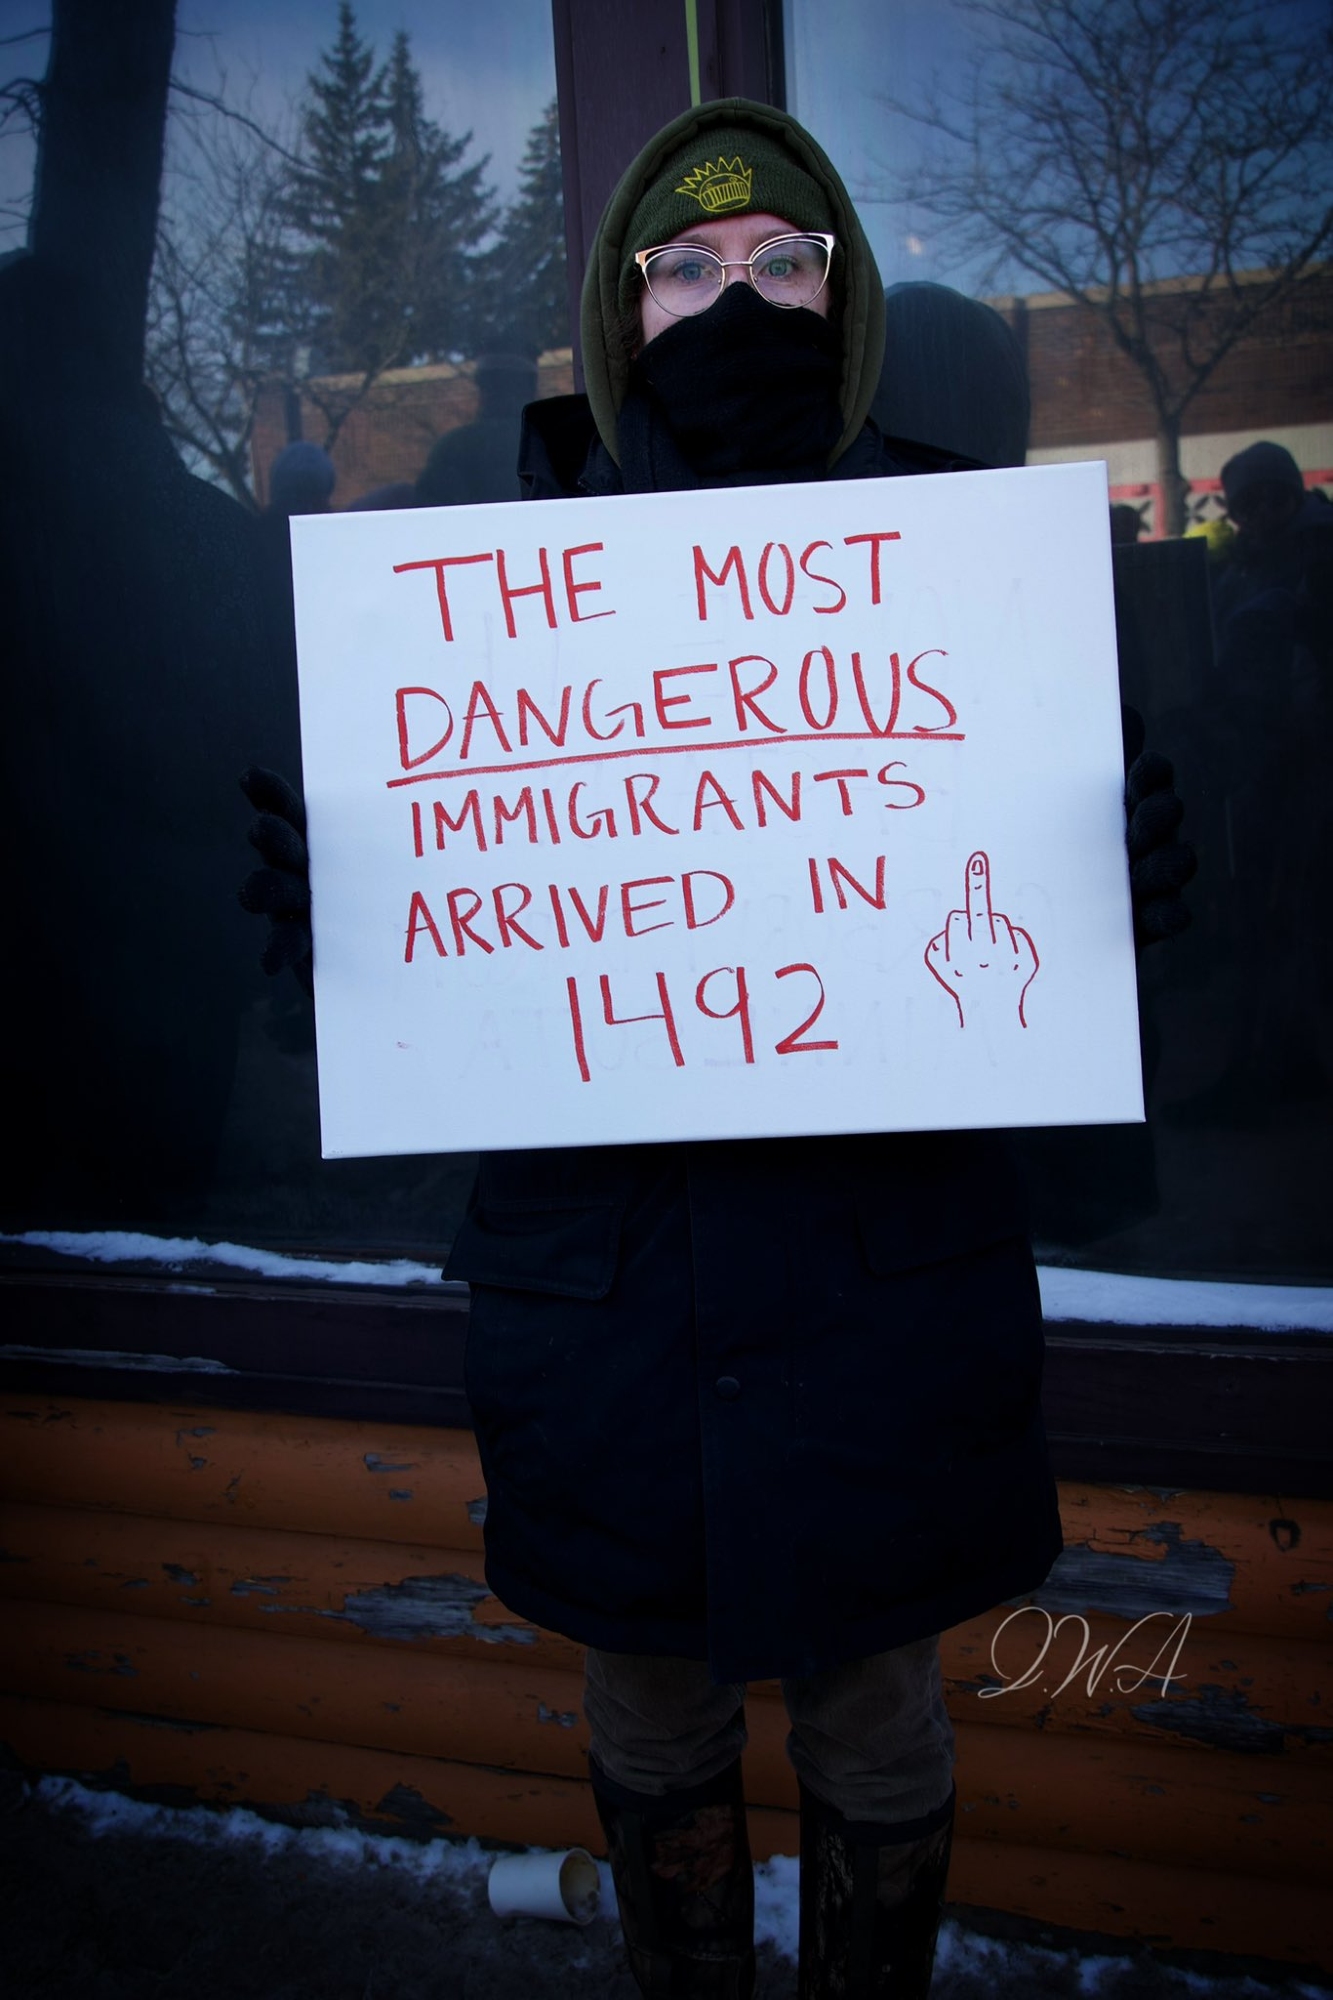 THE MOST
DANGEROUS
IMMIGRANTS
ARRIVED IN
1492
J.W.A